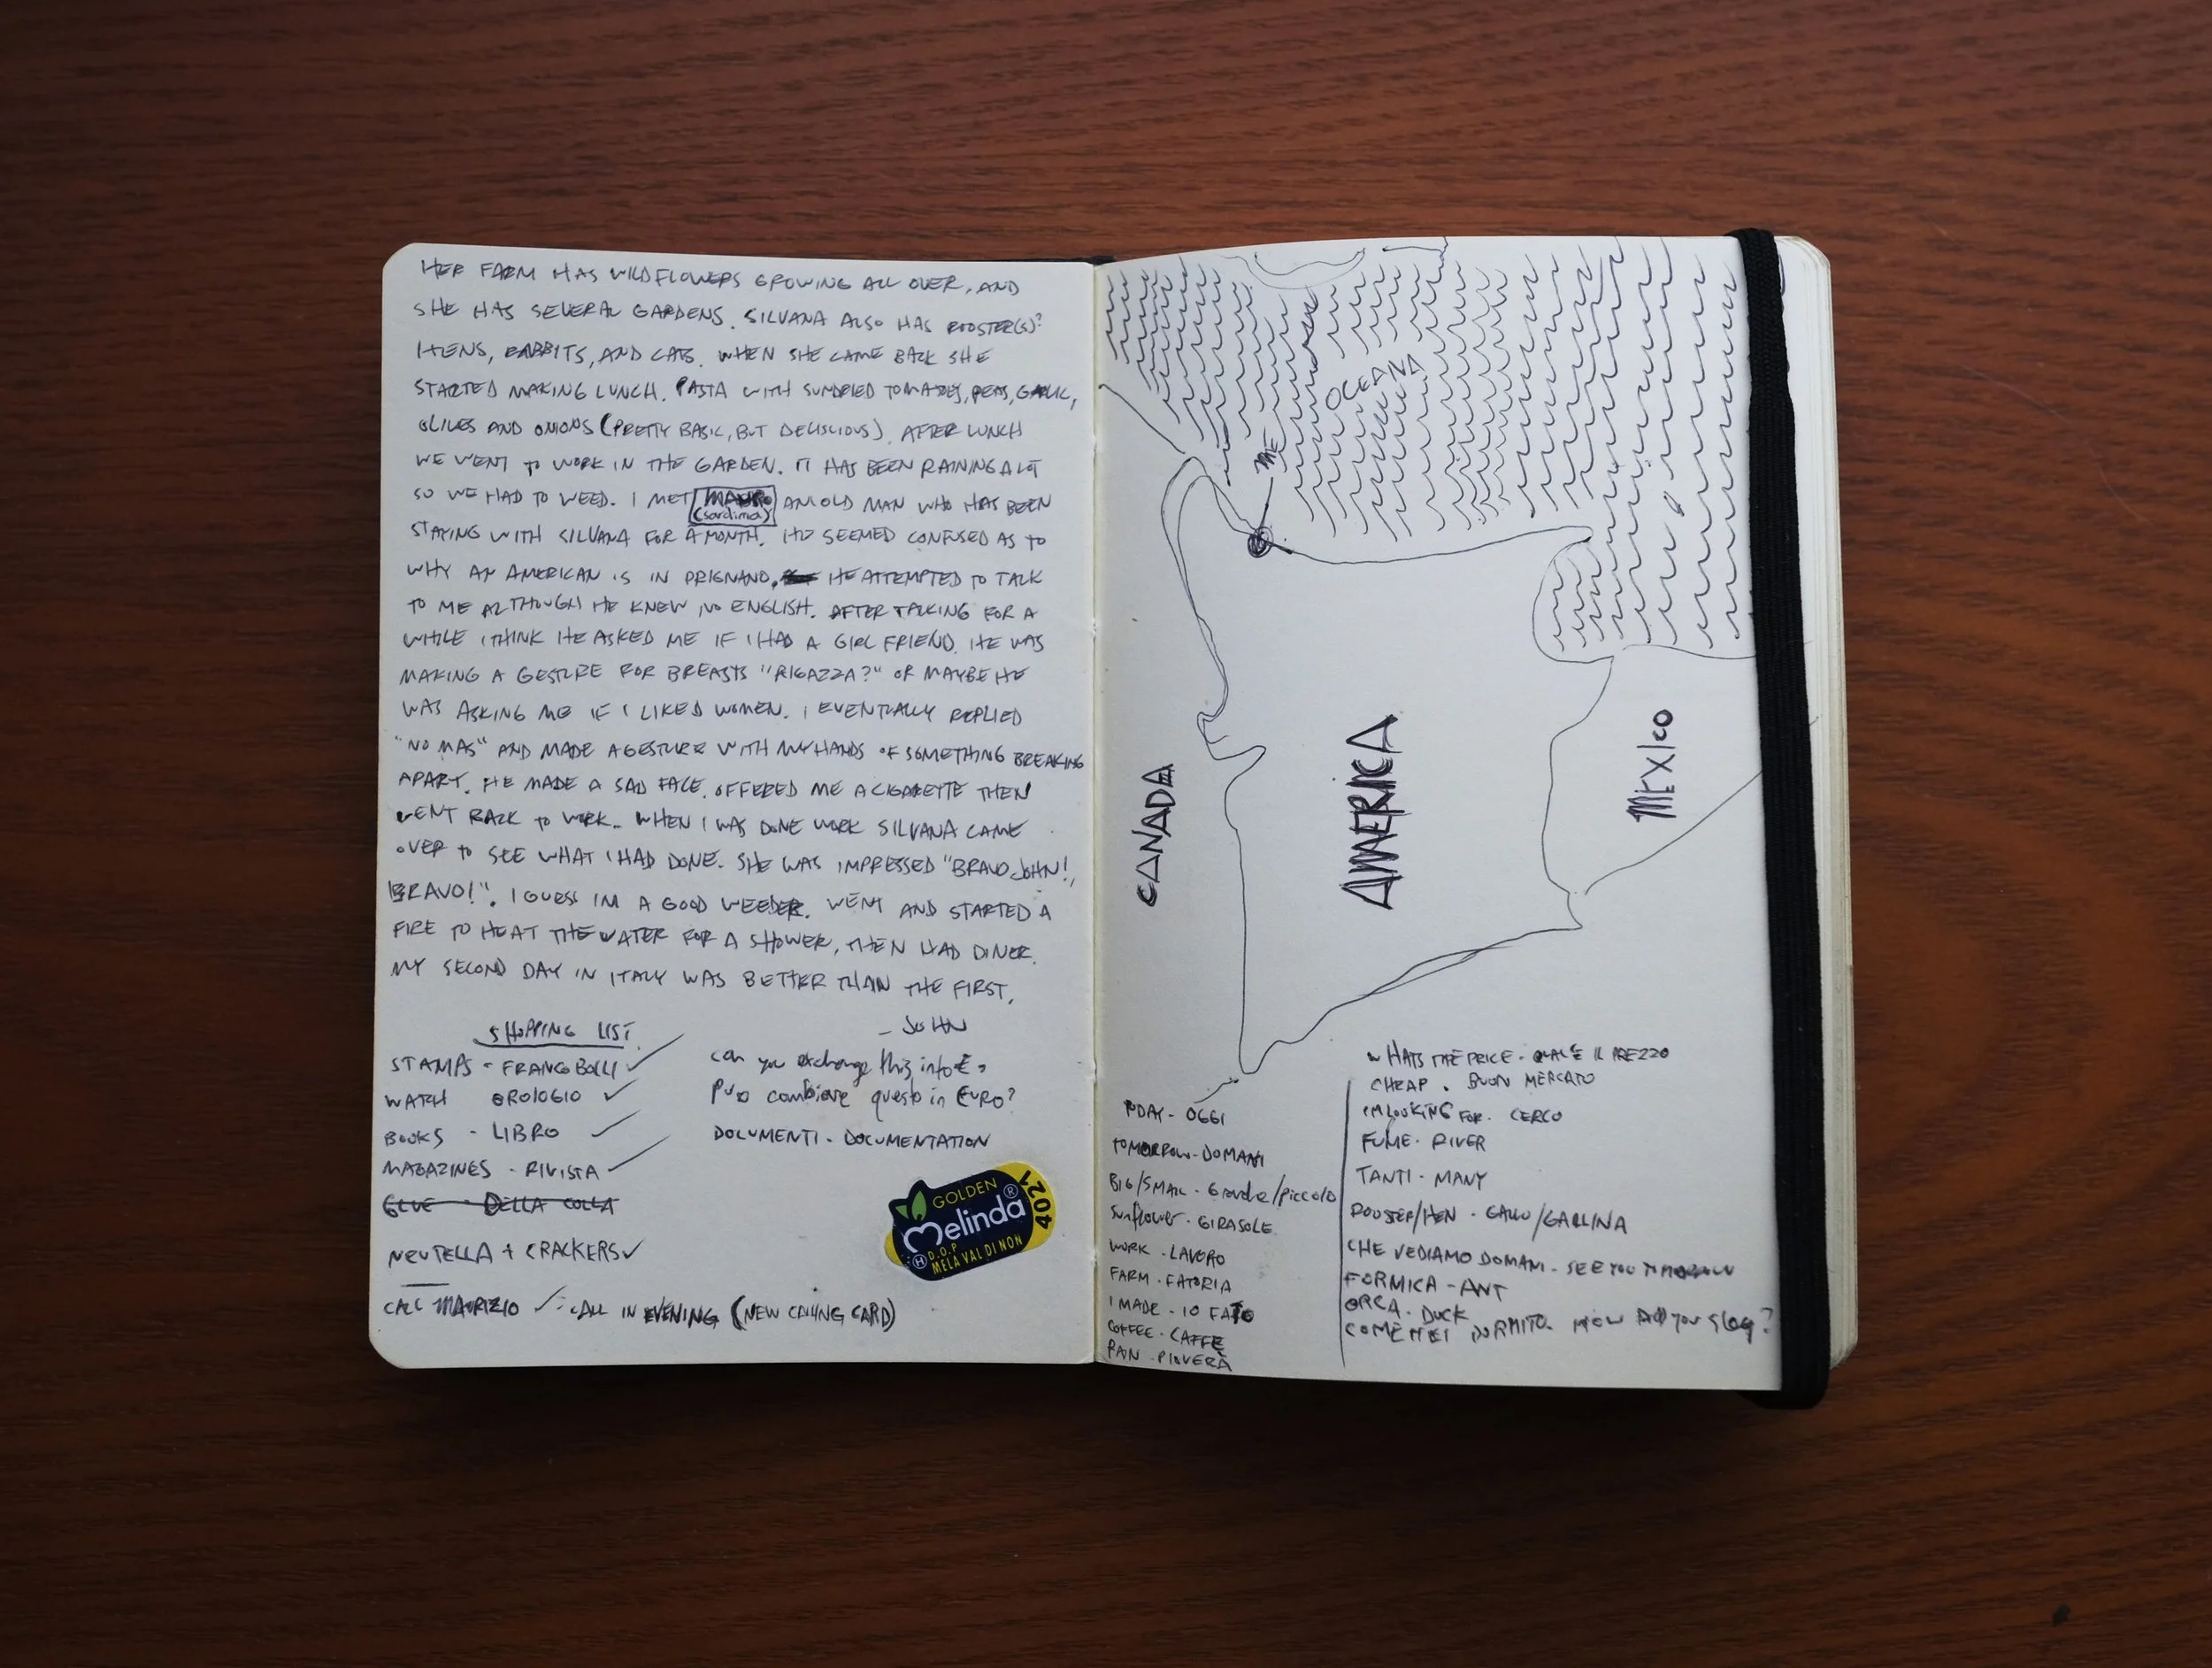 HER FARM HAS WILDFLOWERS GROWING ALL OVER, AND
SHE HAS SEVERAL GARDENS. SILVANA ALSO HAS ROOSTER(S)?
HENS, RABBITS, AND CATS. WHEN SHE CAME BACK SHE
STARTED MAKING LUNCH. PASTA WITH SUNDRIED TOMATOES, PEAS, GARLIC,
OLIVES AND ONIONS (PRETTY BASIC, BUT DELISCIOUS). AFTER LUNCH
WE WENT TO WORK IN THE GARDEN. IT HAS BEEN RAINING A LOT
SO WE HAD TO WEED. I MET MAURO AN OLD MAN WHO HAS BEEN
(sardinia)
STAYING WITH SILVANA FOR A MONTH. HE SEEMED CONFUSED AS TO
WHY AN AMERICAN IS IN PRIGNANO. HE ATTEMPTED TO TALK
TO ME ALTHOUGH HE KNEW NO ENGLISH. AFTER TALKING FOR A
WHILE I THINK HE ASKED ME IF I HAD A GIRL FRIEND. HE WAS
MAKING A GESTURE FOR BREASTS "RIGAZZA?" OR MAYBE HE
WAS ASKING ME IF I LIKED WOMEN. I EVENTUALLY REPLIED
"NO MAS" AND MADE A GESTURE WITH MY HANDS OF SOMETHING BREAKING
APART. HE MADE A SAD FACE, OFFERED ME A CIGARETTE THEN
WENT BACK TO WORK. WHEN I WAS DONE WORK SILVANA CAME
OVER TO SEE WHAT I HAD DONE. SHE WAS IMPRESSED "BRAVO JOHN!,
BRAVO!". I GUESS IM A GOOD WEEDER. WENT AND STARTED A
FIRE TO HEAT THE WATER FOR A SHOWER, THEN HAD DINER.
MY SECOND DAY IN ITALY WAS BETTER THAN THE FIRST.
- JOHN
SHOPPING LIST
STAMPS - FRANCOBOLLI ✓
WATCH OROLOGIO ✓
BOOKS - LIBRO ✓
MAGAZINES - RIVISTA ✓
GLUE - DELLA COLLA
NEUTELLA + CRACKERS ✓
CALL MAURIZIO ✓ - CALL IN EVENING (NEW CALLING CARD)
can you exchange this into €?
Puo cambiare questo in EURO?
DOCUMENTI - DOCUMENTATION
GOLDEN
Melinda®
D.O.P
MELA VAL DI NON
4021
OCEANA
ME
CANADA
AMERICA
MEXICO
TODAY - OGGI
TOMORROW - DOMANI
BIG/SMALL - Grande/piccolo
Sunflower - GIRASOLE
WORK - LAVORO
FARM - FATORIA
I MADE - IO FATO
COFFEE - CAFFE
RAIN - PIOVERÀ
WHATS THE PRICE - QUAL'E IL PREZZO
CHEAP - BUON MERCATO
IM LOOKING FOR - CERCO
FUME - RIVER
TANTI - MANY
ROOSTER/HEN - GALLO/GALLINA
CHE VEDIAMO DOMANI - SEE YOU TOMORROW
FORMICA - ANT
ORCA - DUCK
COME HEI DORMITO - HOW DID YOU SLEEP?